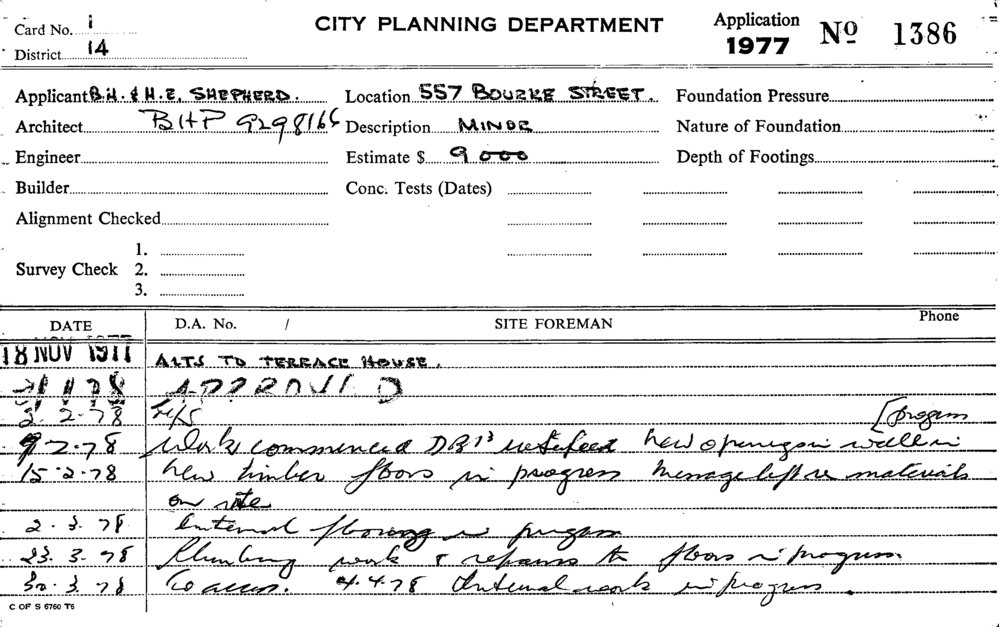 Card No. 1
CITY PLANNING DEPARTMENT
Application
1977
Nº 1386
District 14
Applicant B.H. & H.E. SHEPHERD.
Location 557 BOURKE STREET.
Foundation Pressure
Architect BHP 9298166
Description MINOR
Nature of Foundation
Engineer
Estimate $ 9 000
Depth of Footings
Builder
Conc. Tests (Dates)
Alignment Checked
1.
Survey Check 2.
3.
DATE
D.A. No. /
SITE FOREMAN
Phone
18 NOV 1977 ALTS TO TERRACE HOUSE.
APPROVED
2.2.78
[progress
9.2.78 Work commenced new openings in wall in
15.2.78 New timber floors in progress Message left re materials
on site
2.3.78 Internal flooring in progress
23.3.78 Plumbing work & repairs to floors in progress.
30.3.78 No access. 4.4.78 Internal work in progress.
C OF S 6760 T6